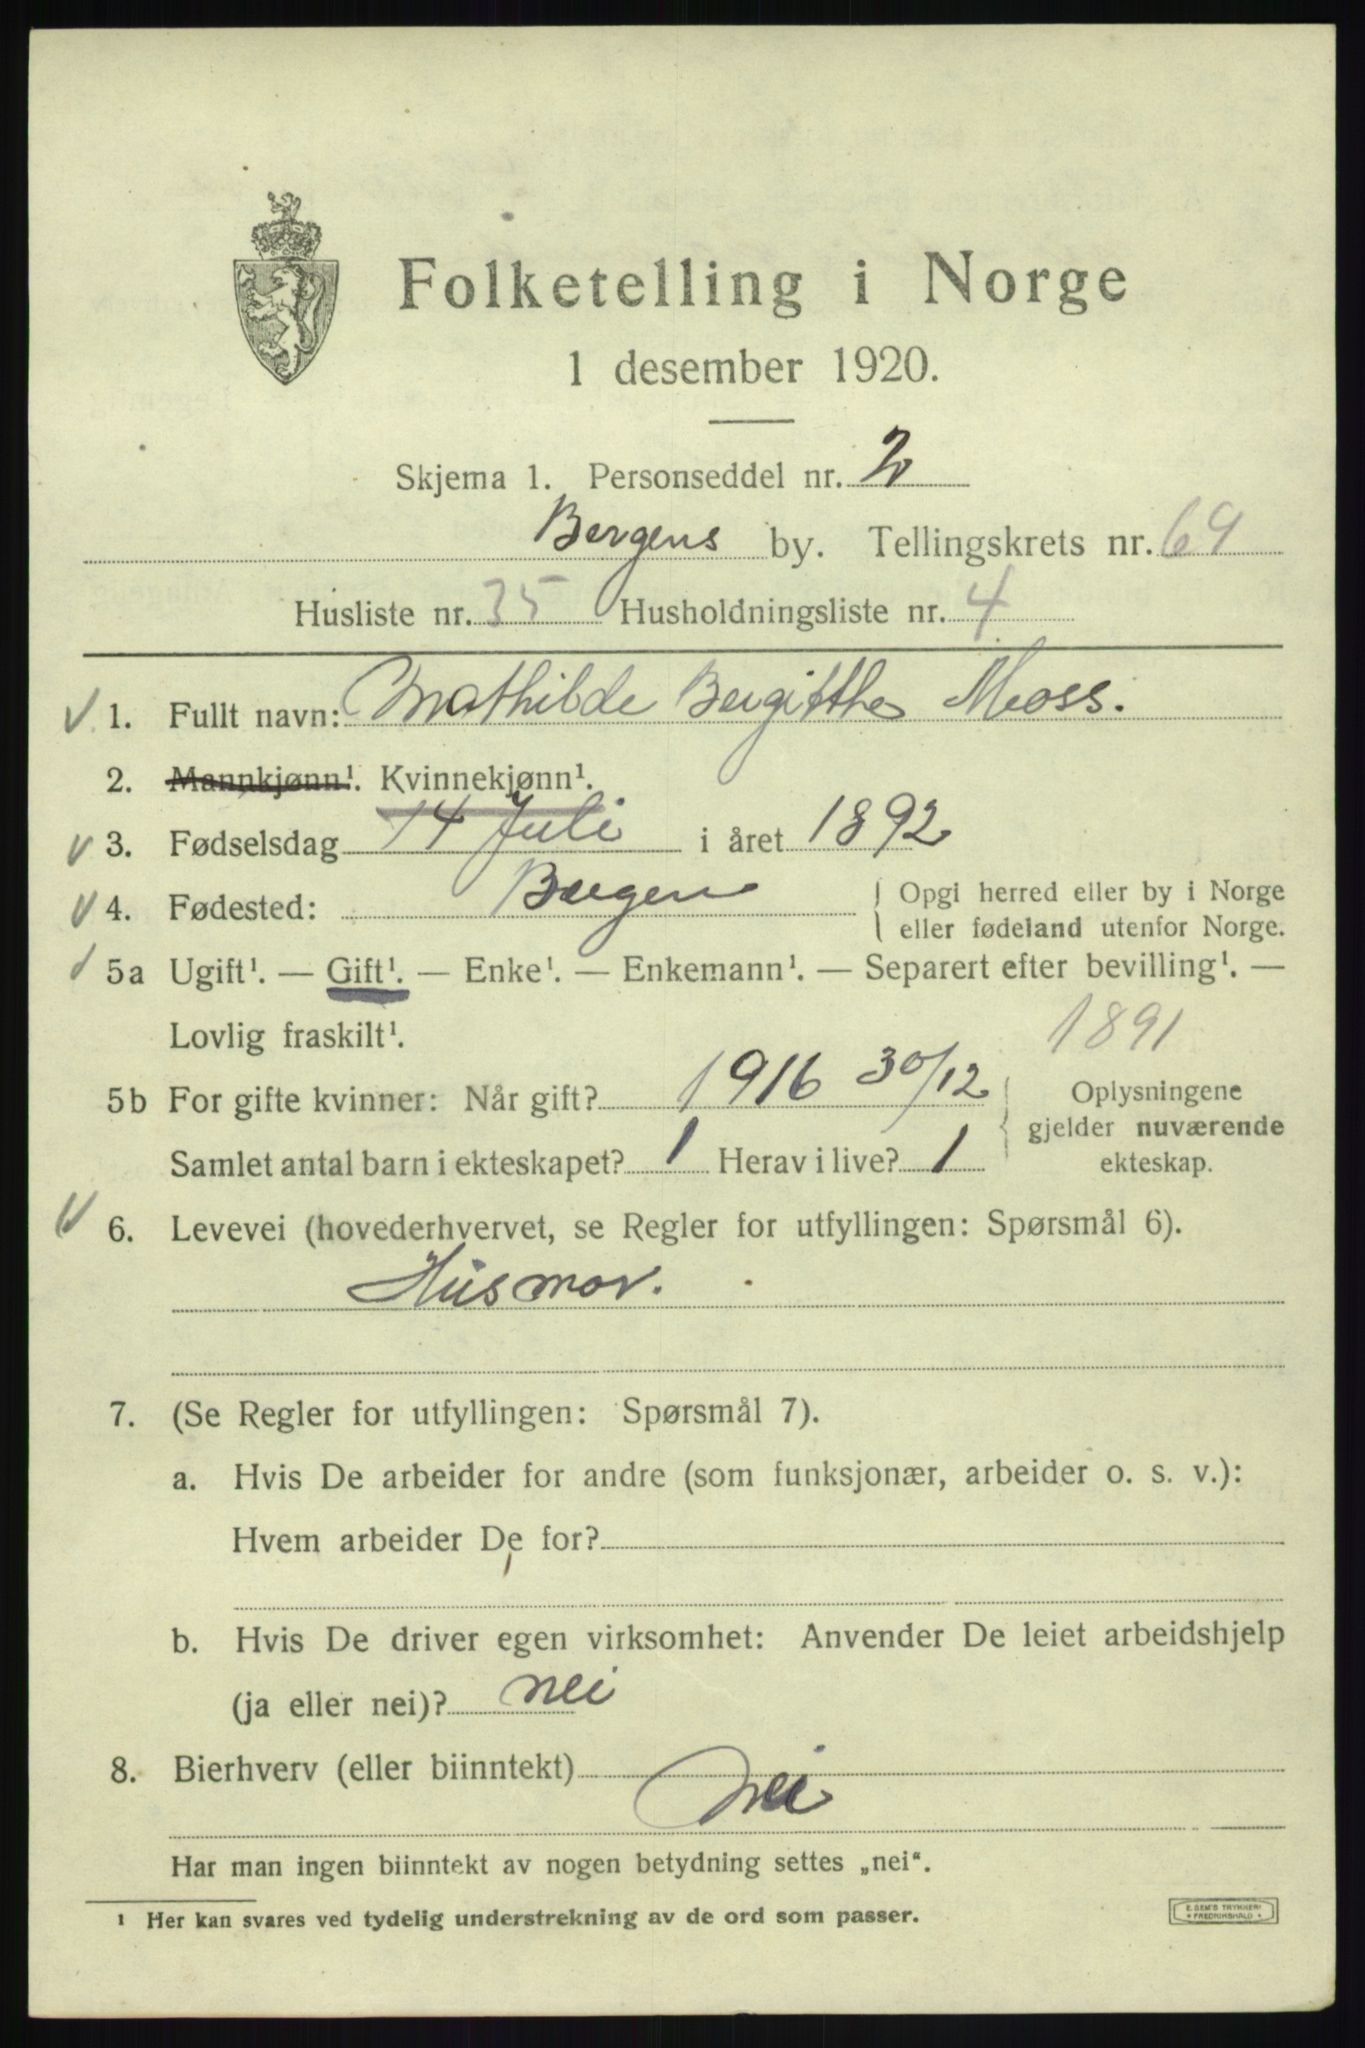 Folketelling i Norge
1 desember 1920.
Skjema 1. Personseddel nr. 2
Bergens by. Tellingskrets nr. 69
Husliste nr. 35 Husholdningsliste nr. 4
1. Fullt navn: Mathilde Bergitthe Moss.
2. Mannkjønn¹. Kvinnekjønn¹.
3. Fødselsdag 14 Juli i året 1892
4. Fødested: Bergen { Opgi herred eller by i Norge
eller fødeland utenfor Norge.
5a Ugift¹. — Gift¹. — Enke¹. — Enkemann¹. — Separert efter bevilling¹. —
Lovlig fraskilt¹. 1891
5b For gifte kvinner: Når gift? 1916 30/12 { Oplysningene
gjelder nuværende
Samlet antal barn i ekteskapet? 1 Herav i live? 1 ekteskap.
6. Levevei (hovederhvervet, se Regler for utfyllingen: Spørsmål 6).
Husmor.
7. (Se Regler for utfyllingen: Spørsmål 7).
a. Hvis De arbeider for andre (som funksjonær, arbeider o. s. v.):
Hvem arbeider De for?
b. Hvis De driver egen virksomhet: Anvender De leiet arbeidshjelp
(ja eller nei)? nei
8. Bierhverv (eller biinntekt) Nei
Har man ingen biinntekt av nogen betydning settes „nei“.
¹ Her kan svares ved tydelig understrekning av de ord som passer.
E. SEM'S TRYKKERI
• FREDRIKSHALD •